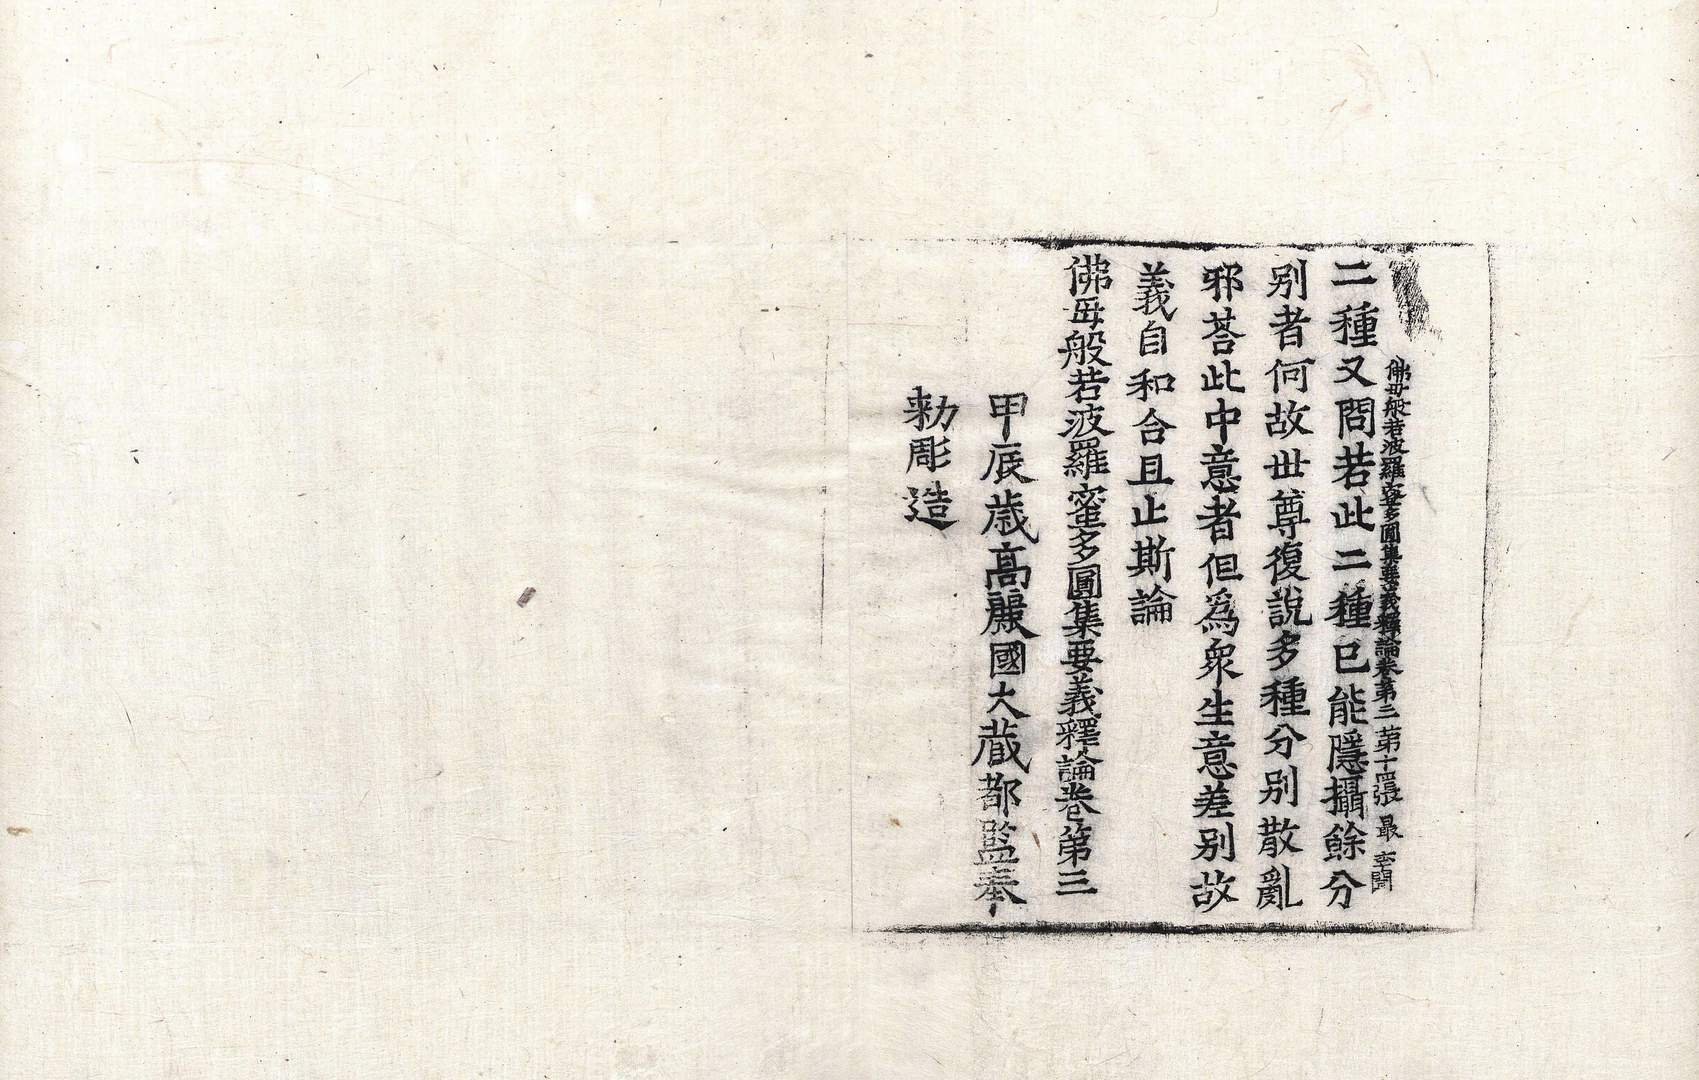 佛母般若波羅蜜多圓集要義釋論卷第三 第十四張 最
二種又問若此二種已能隱攝餘分
别者何故世尊復說多種分别散亂
邪荅此中意者但爲衆生意差别故
義自和合且止斯論
佛母般若波羅蜜多圓集要義釋論卷第三
甲辰歲高麗國大藏都監奉
勑彫造